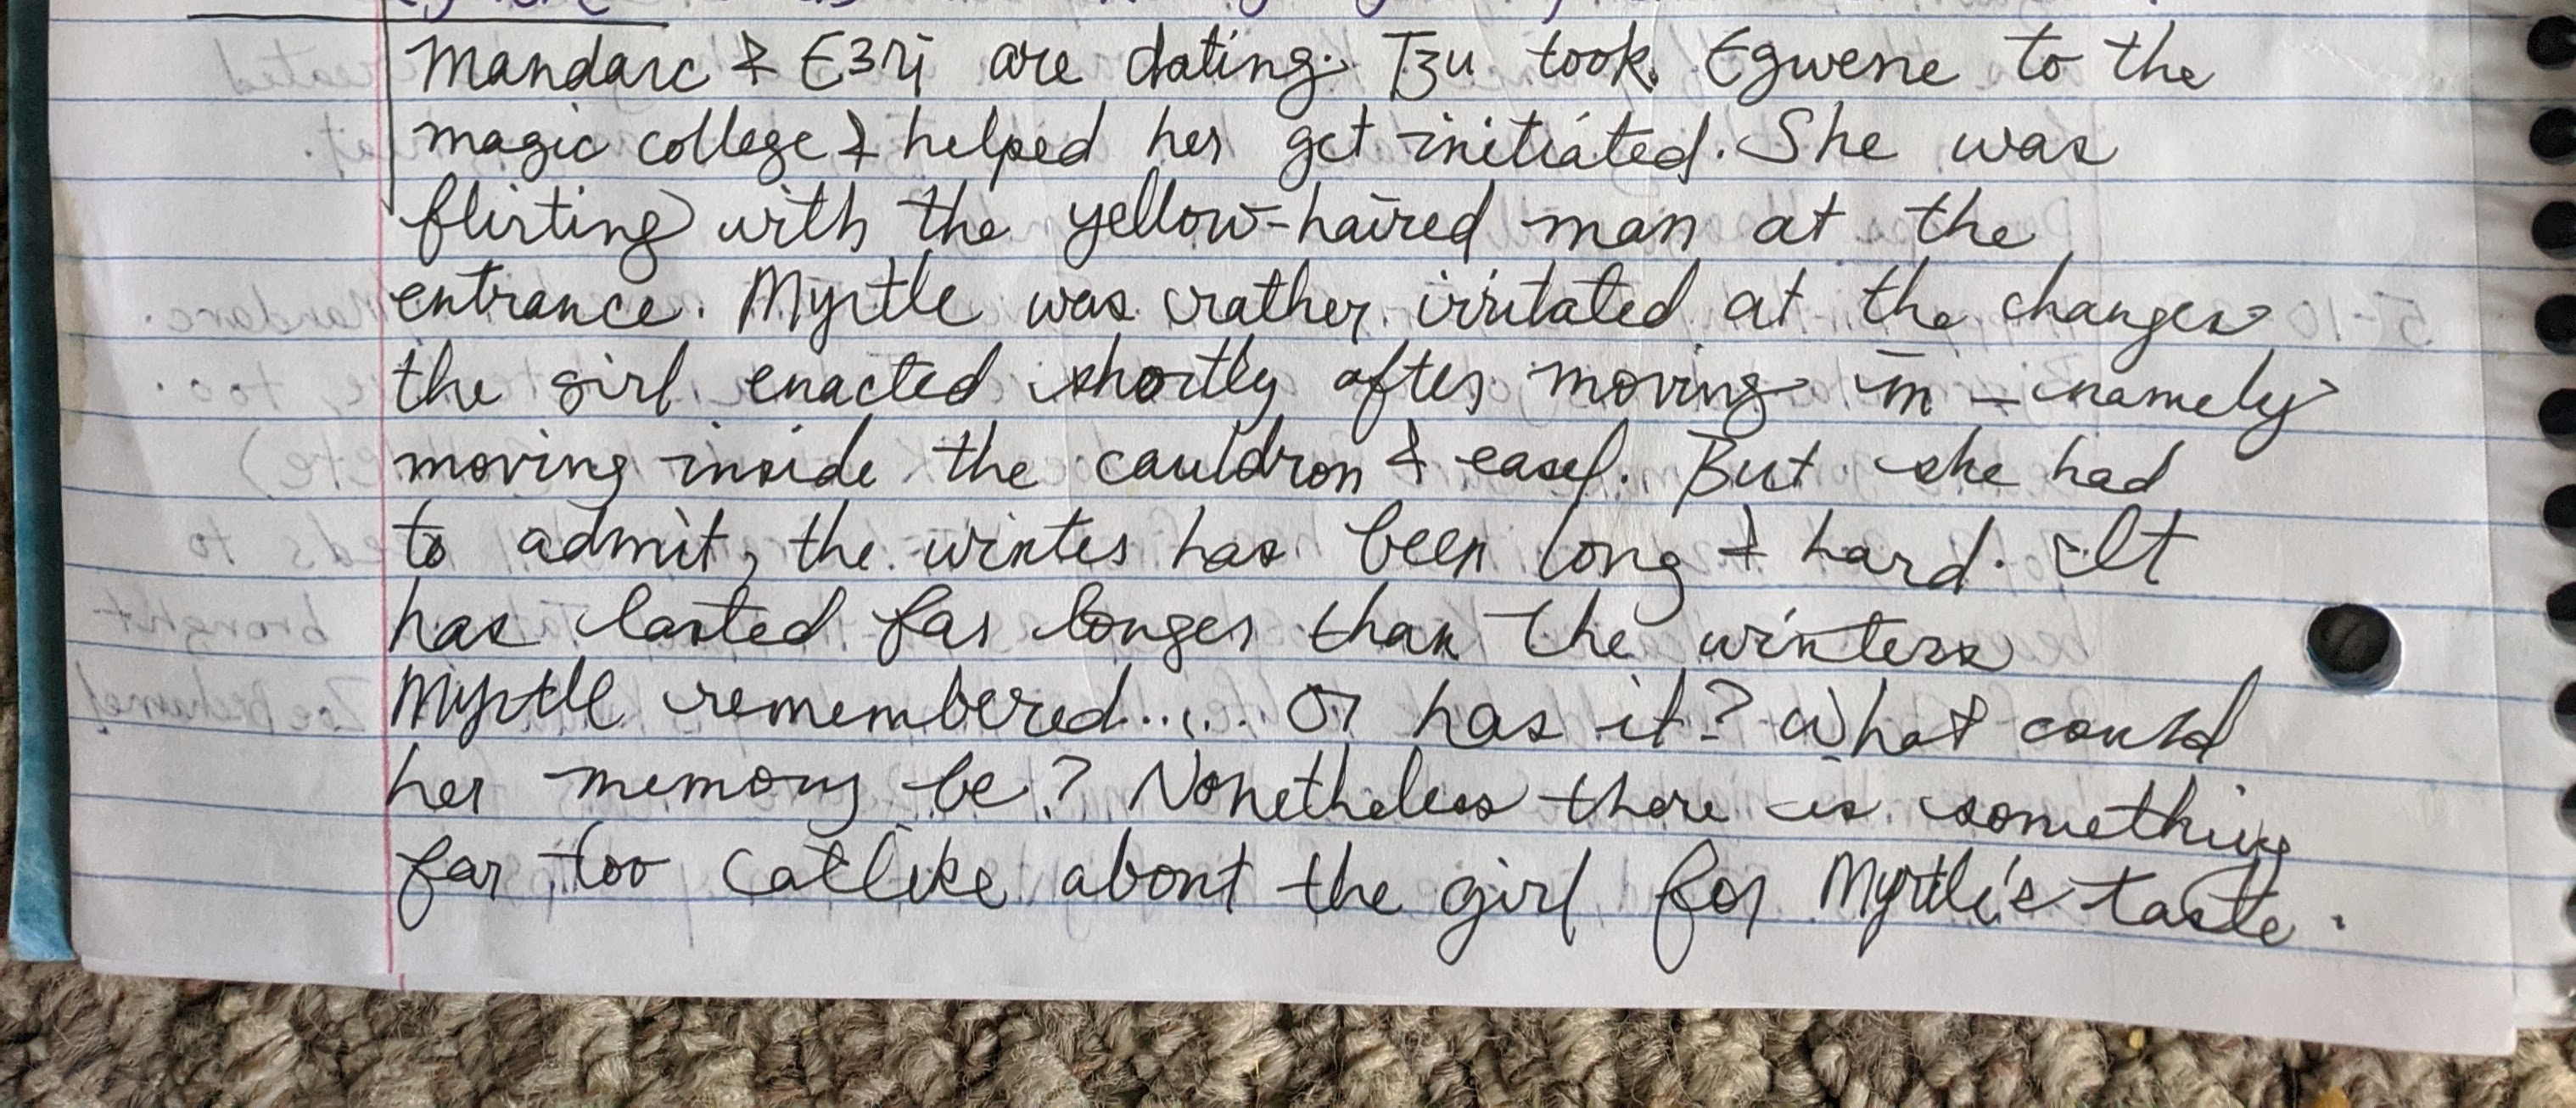 Mandarc & Ezri are dating. Tzu took Egwene to the
magic college & helped her get initiated. She was
flirting with the yellow-haired man at the
entrance. Myrtle was rather irritated at the changes
the girl enacted shortly after moving in – namely
moving inside the cauldron & easel. But she had
to admit, the winter has been long & hard. It
has lasted far longer than the winters
Myrtle remembered..... Or has it? What could
her memory be? Nonetheless there is something
far too catlike about the girl for Myrtle's taste.